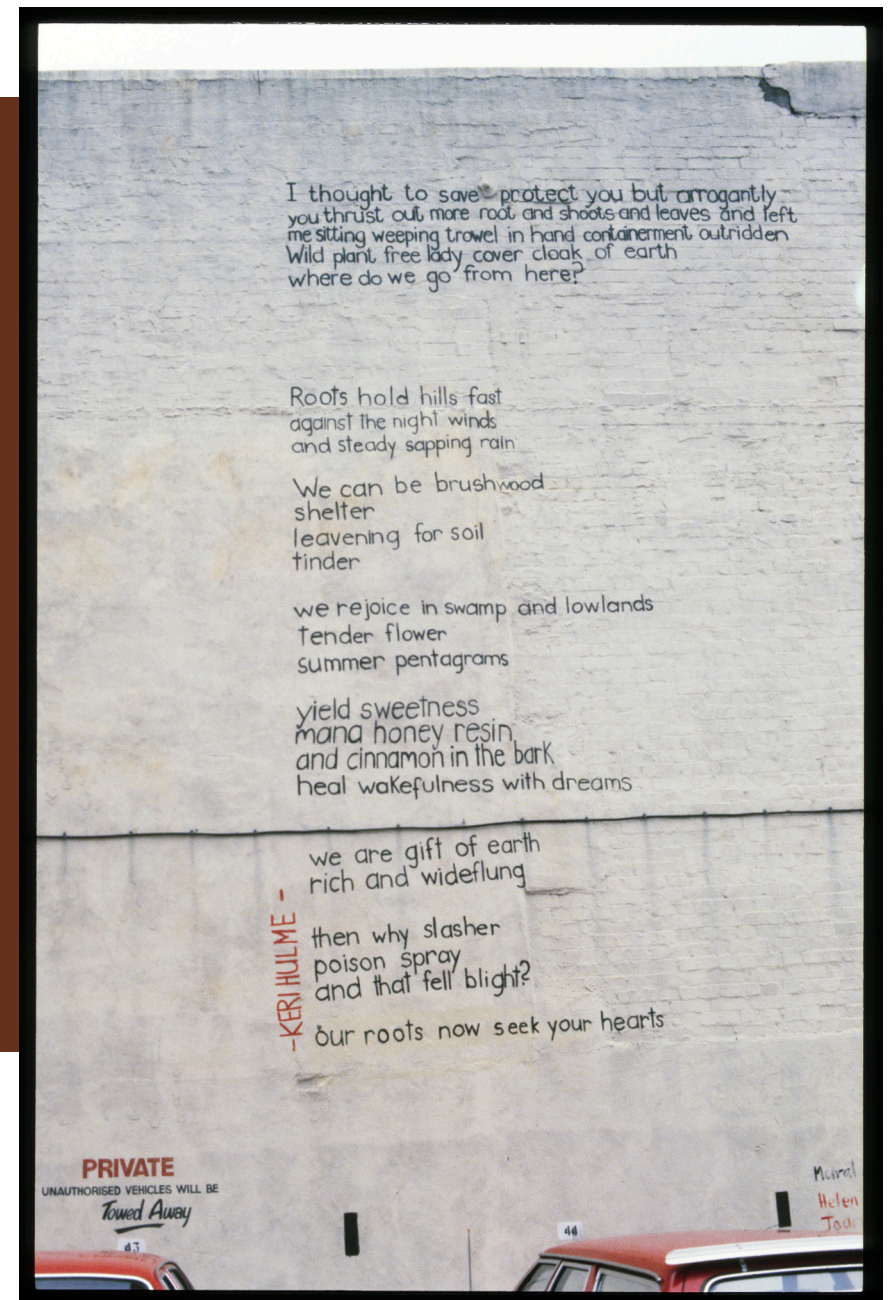 I thought to save protect you but arrogantly
you thrust out more root and shoots and leaves and left
me sitting weeping trowel in hand containerment outridden
Wild plant free lady cover cloak of earth
where do we go from here?
Roots hold hills fast
against the night winds
and steady sapping rain
We can be brushwood
shelter
leavening for soil
tinder
we rejoice in swamp and lowlands
tender flower
summer pentagrams
yield sweetness
mana honey resin
and cinnamon in the bark
heal wakefulness with dreams
we are gift of earth
rich and wideflung
then why slasher
poison spray
and that fell blight?
our roots now seek your hearts
-KERI HULME-
PRIVATE
UNAUTHORISED VEHICLES WILL BE
Towed Away
43
44
Mural
Helen